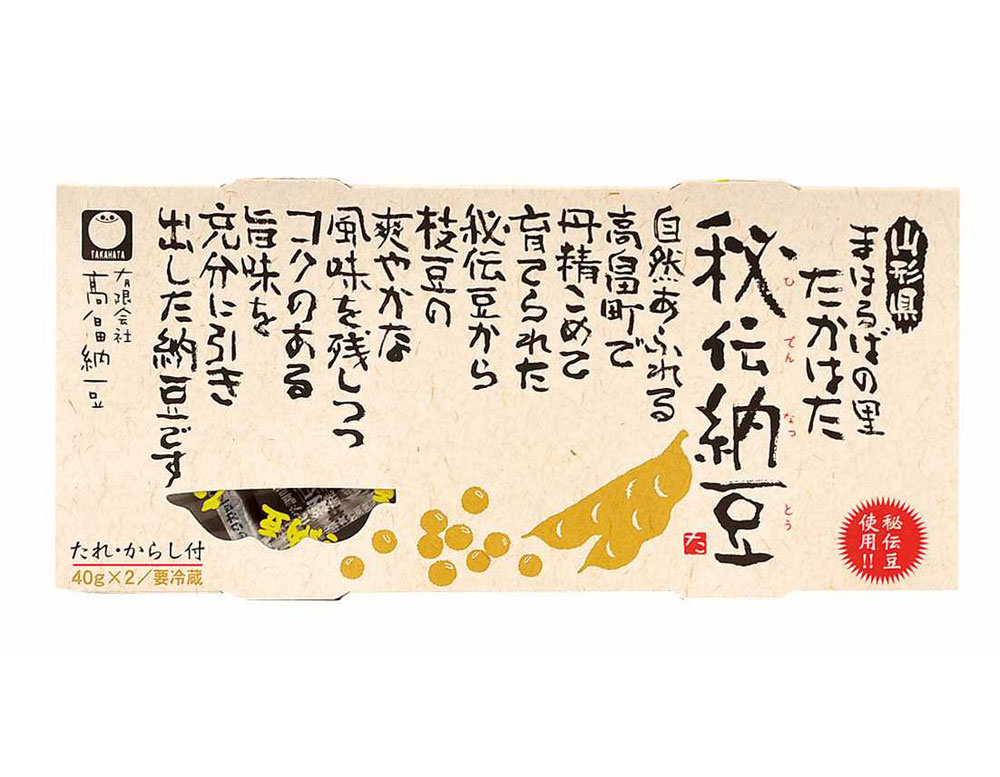 山形県
まほろばの里
たかはた
秘伝納豆
ひでんなっとう
た
秘伝豆
使用!!
自然あふれる
高畠町で
丹精こめて
育てられた
秘伝豆から
枝豆の
爽やかな
風味を残しつつ
コクのある
旨味を
充分に引き
出した納豆です
TAKAHATA
有限会社
高畠納豆
たれ・からし付
40g×2/要冷蔵